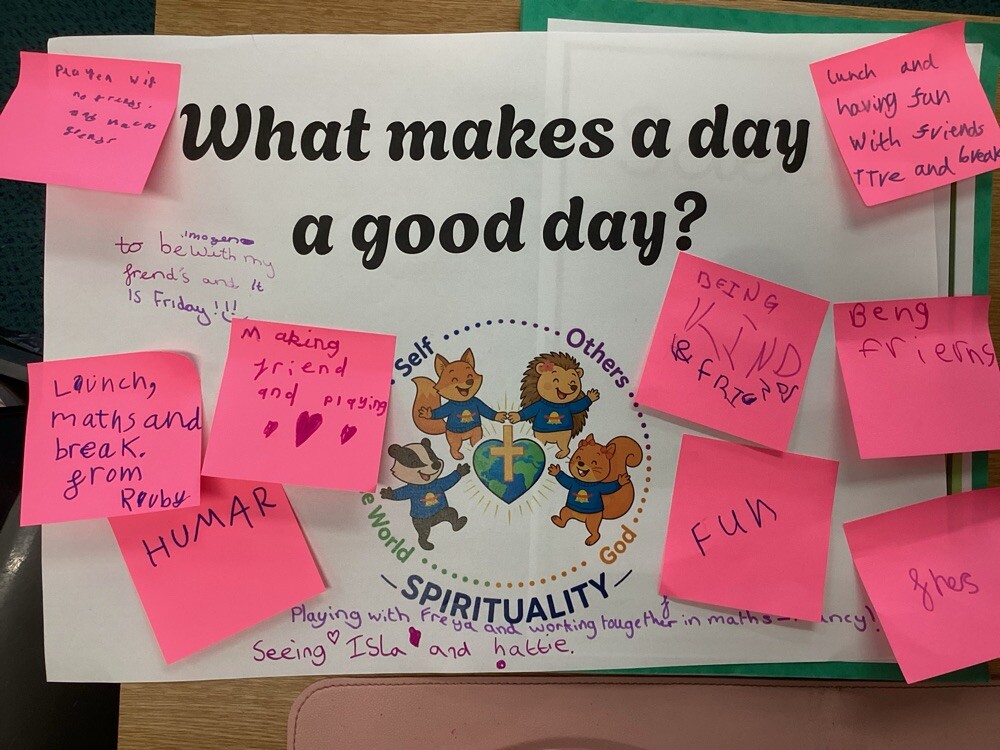 What makes a day
a good day?
Playen wif
and
Lunch and
having fun
with friends
TTre and break
imogen
to be with my
frend's and it
Is Friday!!!
Making
friend
and playing
Launch,
maths and
break.
from
Rouby
HUMAR
BEING
KIND
& FRIENDS
Beng
frierns
FUN
Self
Others
World
God
SPIRITUALITY
Playing with Freya and working tougether in maths - ncy!
Seeing ISLa and hattie.